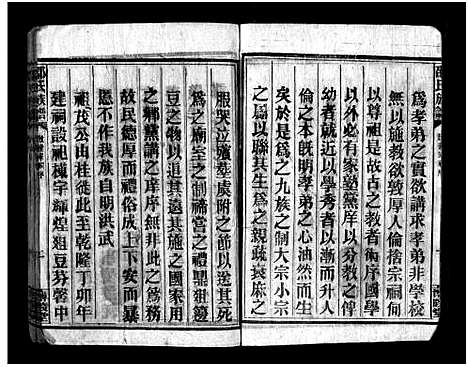 為孝弟之實欲講求孝弟非學校
無以施教欲敦厚人倫捨宗祠何
以尊祖是故古之教者術序國學
以外必有家塾黨庠以分教之俾
幼者就近以學秀者以漸而升人
倫之本既明孝弟之心油然而生
矣於是為之九族之制大宗小宗
之屬以聯其生為之親疏衰麻之
服哭泣殯葬虞附之節以送其死
為之廟室之制禘嘗之禮鼎俎籩
豆之物以追其遠其施之國家用
之鄉黨講之庠序無非以此為務
故民德厚而禮俗成上下安而暴
慝不作我族自明洪武
祖茂公山桂徙此至乾隆丁卯年
建祠設祀棟宇輝煌俎豆芬馨中